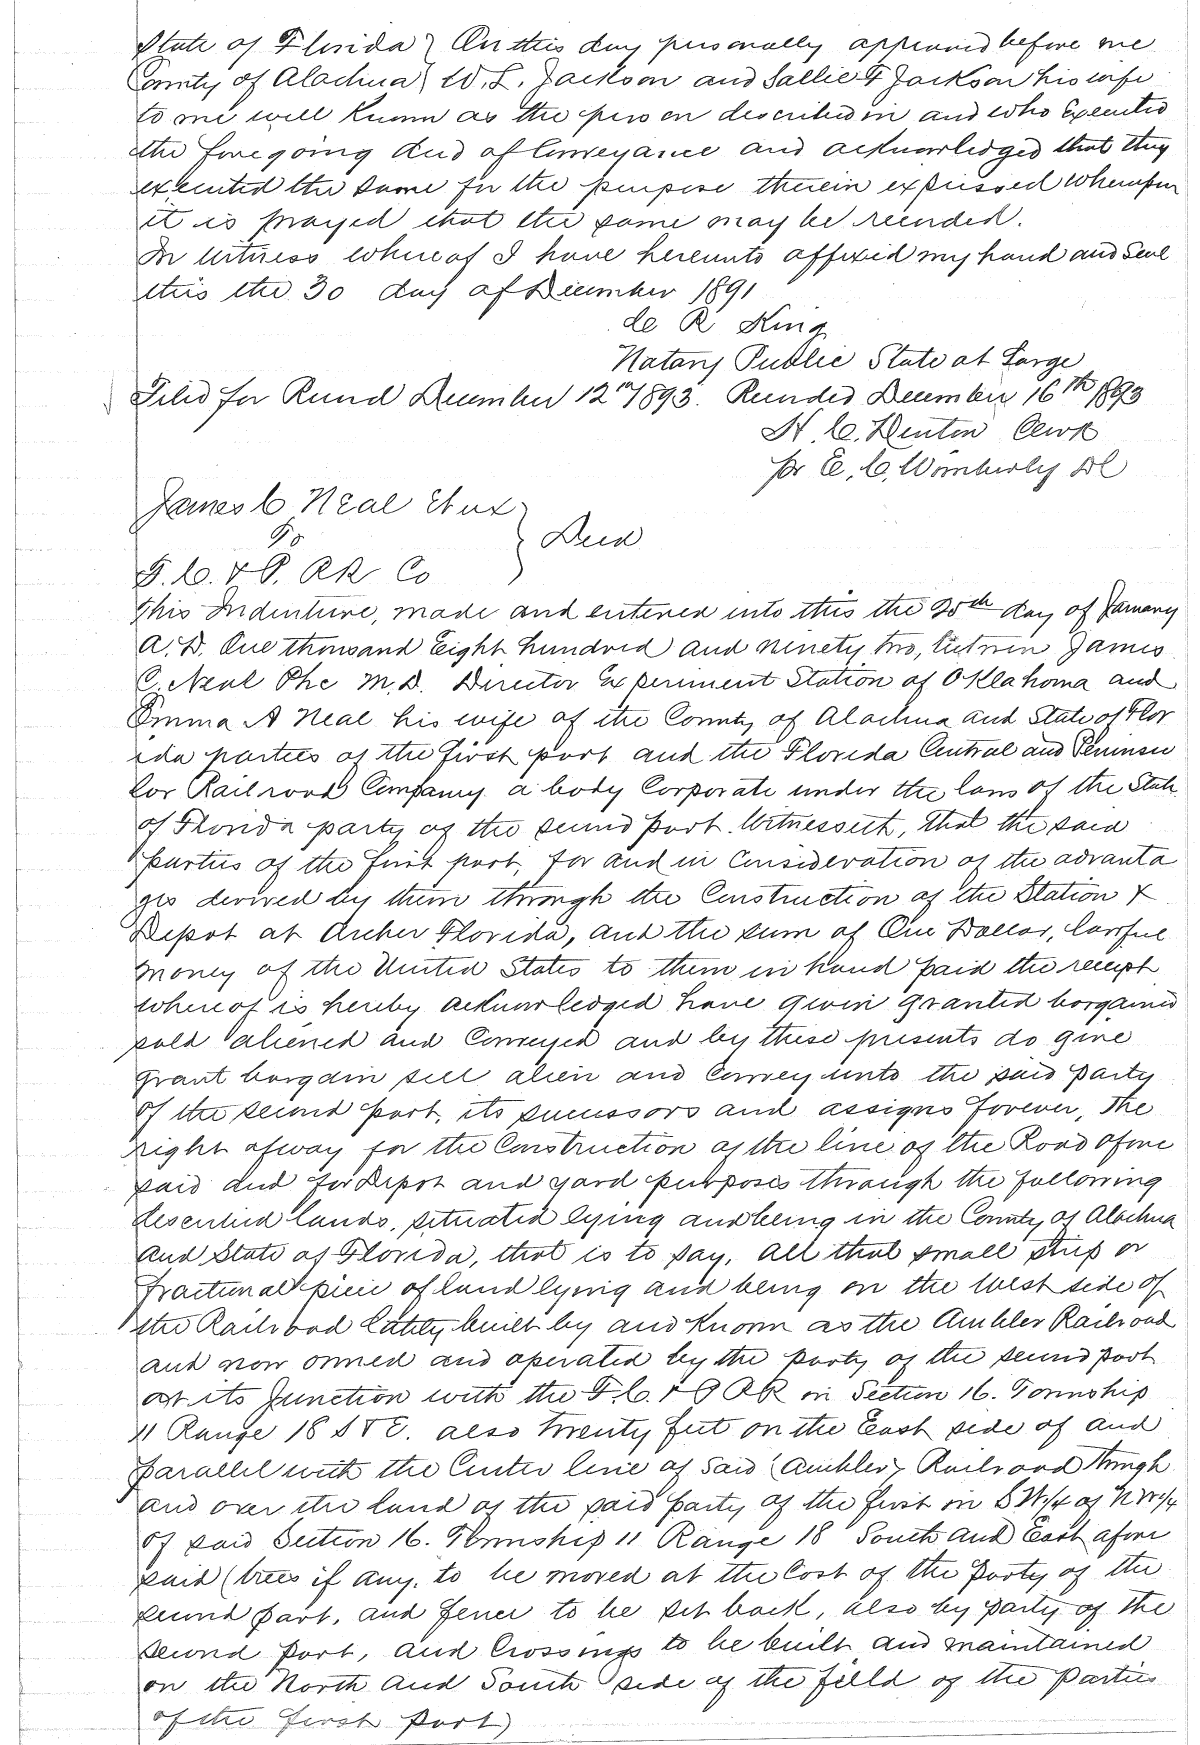 State of Florida } On this day personally appeared before me
County of Alachua } W. L. Jackson and Sallie F Jackson his wife
to me well known as the person described in and who Executed
the foregoing deed of Conveyance and acknowledged that they
executed the same for the purpose therein expressed whereupon
it is prayed that the same may be recorded.
In witness whereof I have hereunto affixed my hand and seal
this the 30 day of December 1891
R King
Notary Public State at Large
Filed for Record December 12th 1893. Recorded December 16th 1893
H. C. Denton Clerk
pr E. C. Wimberly DC
James C Neal Et ux
To } Deed
F. C. & P. RR Co
This Indenture, made and entered into this the 25th day of January
A. D. One thousand Eight hundred and ninety two, between James
C. Neal Phc M.D. Director Experiment Station of Oklahoma and
Emma A Neal his wife of the County of Alachua and State of Flor
ida parties of the first part and the Florida Central and Peninsu
lar Railroad Company a body Corporate under the laws of the State
of Florida party of the second part. Witnesseth, that the said
parties of the first part, for and in Consideration of the advanta
ges derived by them through the Construction of the Station &
Depot at Archer Florida, and the sum of One Dollar, lawful
money of the United States to them in hand paid the receipt
whereof is hereby acknowledged have given granted bargained
sold aliened and Conveyed and by these presents do give
grant bargain sell alien and Convey unto the said party
of the second part, its sucessors and assigns forever, The
right of way for the Construction of the line of the Road afore
said and for Depot and yard purposes through the following
described lands, situated lying and being in the County of Alachua
and State of Florida, that is to say, all that small strip or
fractional piece of land lying and being on the West side of
the Railroad lately built by and known as the Ambler Railroad
and now owned and operated by the party of the second part
at its Junction with the F. C. & P RR in Section 16. Township
11 Range 18 S & E. also twenty feet on the East side of and
parallel with the Center line of said (Ambler) Railroad through
and over the land of the said party of the first in SW1/4 of NW1/4
of said Section 16. Township 11 Range 18 South and East afore
said (trees if any, to be moved at the Cost of the Party of the
second part, and fence to be set back, also by party of the
second part, and Crossings to be built and maintained
on the North and South side of the field of the parties
of the first part)